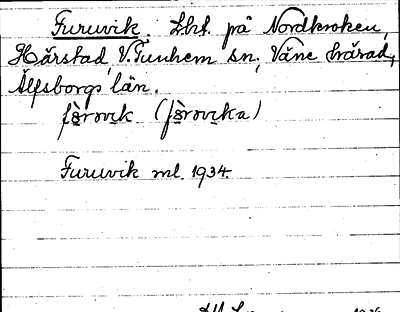 Furuvik. Lht. på Nordkroken,
Hårstad, V. Tunhem sn, Väne härad,
Älfsborgs län.
fọ̀rovik (fọ̀rovika)
Furuvik ml. 1934.